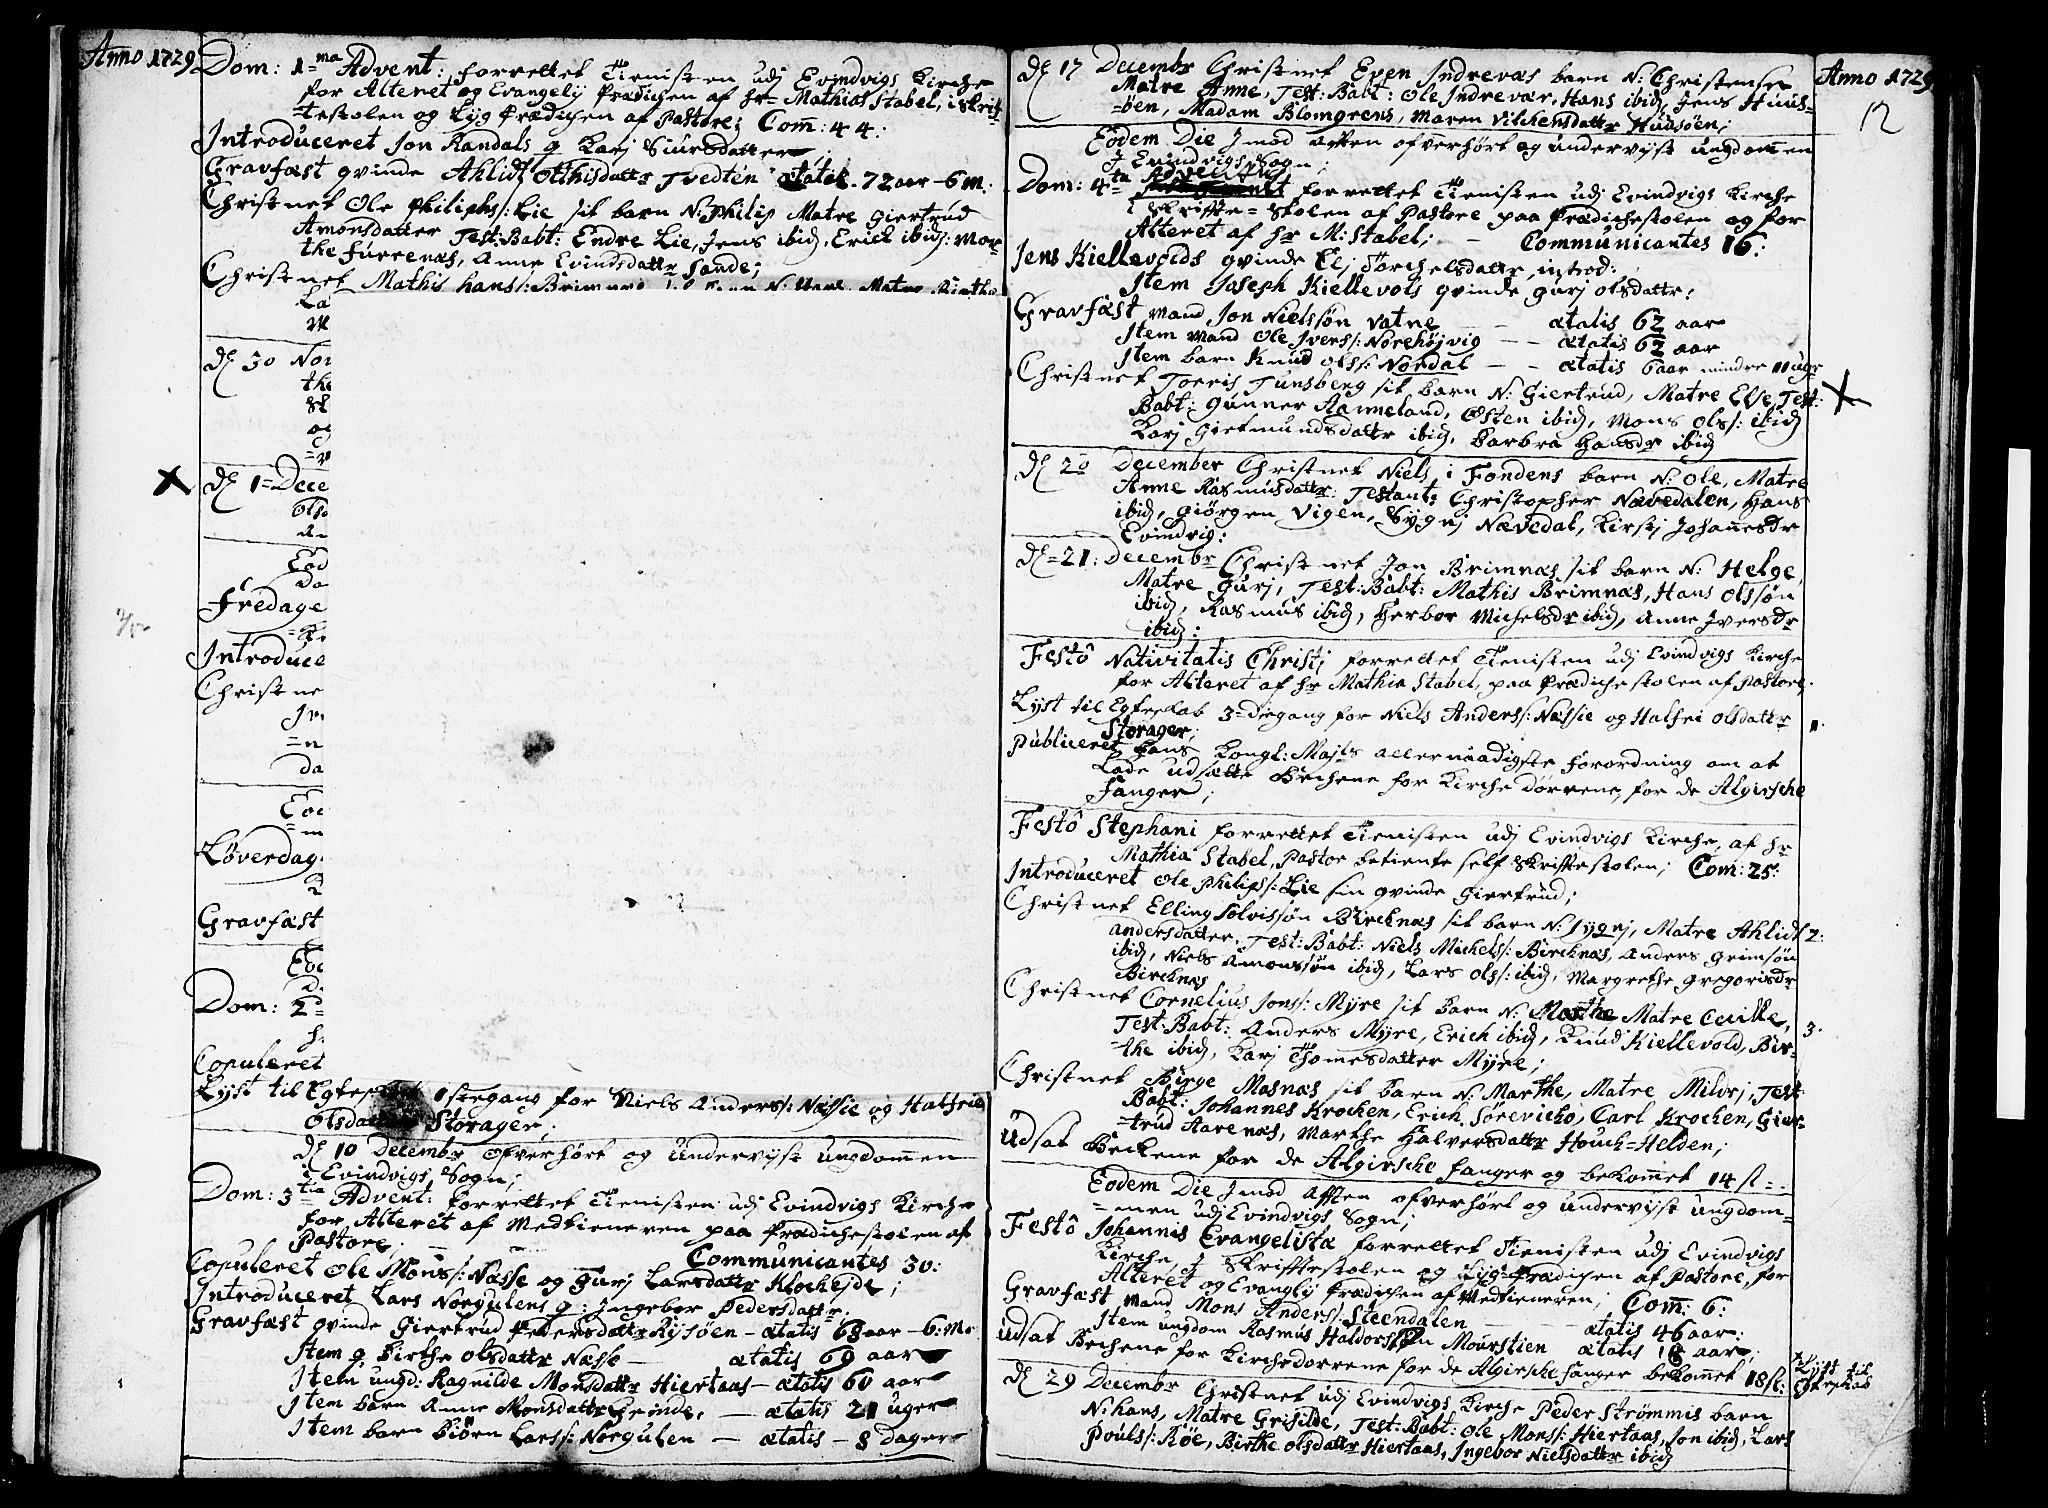 Anno 1729
Dom: 1=ma Advent: forrettet Tienisten udj Evindvigs Kirche
for Alteret og Evangelij Prædichen af hr Mathias Stabel, i Skrif-
testolen og Lyg Prædichen af Pastore; Com: 44:
Introduceret Jon Randals q Karj Siursdatter
Gravfæst qvinde Ahlidt Otthisdattr Tvedten ætatis. 72 aar - 6 m:
Christnet Ole Philiphs/: Lie sit barn N: Philip Matre Giertrud
Amonsdatter Test: Babt: Endre Lie, Jens ibid, Erick ibid: Mar-
the Furrenæs, Anne Evindsdattr Sande;
Christnet Mathis hans/: Brimnæs
La
M
D 30 Nor
the
Sk
og
D 1=Dece
Olsd
An
Eod
Da
Fredage
Introduce
Christne
Iv
=n
da
Eod
=m
Løverdag
Gravfæst
Eod
Dom: 2=
Copuleret
Lyst til Egteskab 1 siegang for Niels Anders/: Næssie og Halfrie
Olsdatter Storager;
D 10 Decembr Ofverhørt og undervijst ungdommen
i Evindvigs Sogn;
Dom: 3tia Advent: forrettet Tienisten udj Evindvigs Kirche
for Alteret af Medtieneren paa Prædichestolen af
Pastore, Communicantes 30:
Copuleret Ole Mons/: Næsse og Gurj Larsdattr Klochejde;
Introduceret Lars Norgulens q: Ingebor Pedersdattr.
Gravfæst qvinde Giertrud Pedersdattr Rysøen - ætatis 68 aar - 6: M:
Item q Birthe Olsdattr Næsse - ætatis 69 aar
Item ungd: Ragnilde Monsdattr Hiertaas - ætatis 60 aar
Item barn Anne Monsdattr Grinde, - ætatis 21 uger
Item barn Biørn Lars/: Norgulen - ætatis - 8 Dager
Anno 1729
12
D 17 Decembr Christnet Even Indrevæs barn N: Christense
Matre Anne, Test: Babt: Ole Indrevær, Hans ibid, Jens Huus-
øen, Madam Blomgrens, Maren Vilchensdattr Huusøen;
Eodem Die Imod Aften ofverhørt og undervijst ungdommen
I Evindvigs Sogn;
Dom: 4ta Adventus forrettet Tienisten udj Evindvigs Kirche
i Skrifte=Stolen af Pastore paa Prædichestolen og for
Alteret af hr M: Stabel; - Communicantes 16:
Jens Kiellevolds qvinde Elj Torchelsdattr introd:
Item Joseph Kiellevols qvinde gurj Olsdattr:
Gravfæst Mand Jon Nielssøn Vatne - - ætatis 62 aar
Item Mand Ole Ivers/: Nørehøjvig - - ætatis 62 aar
Item barn Knud Ols/: Nordal - - ætatis 6 aar mindre 11 uger
Christnet Torris Tunsberg sit barn N: Giertrud, Matre Else, Test:
Babt: Gunner Aanneland, Østen ibid, Mons Ols/: ibid
Karj Giermundsdattr ibid, Barbra Hansdr ibid
D 20 December Christnet Niels i Fondens barn N: Ole, Matre
Anne Rasmusdattr: Testants Christopher Nævedalen, Hans
ibid, Giørgen Vigen, Sygnj Nævedal, Kirstj Johannesdr
Evindvig:
D=21: Decembr Christnet Jon Brimnæs sit barn N: Helge,
Matre gurj, Test: Babt: Mathis Brimnæs, Hans Olssøn
ibid, Rasmus ibid, Herbor Michelsdr ibid, Anne Iversdr
ibid:
Festô Nativitatis Christi forrettet Tienisten udj Evindvigs Kirche
for Alteret af hr Mathia Stabel, paa Prædichestolen af Pastore,
Lyst til Egteskab 3=diegang for Niels Anders/: Næssie og Halfri Olsdattr
Storager; 1.
Publiceret Hans Kongl: Majts allernaadigste forordning om at
Lade udsætte Bechene for Kirche dørrene, for de Algirsche
Fanger;
Festô Stephani forrettet Tienisten udj Evindvigs Kirche, af hr
Mathia Stabel, Pastor betiente self Skriftestolen; Com: 25:
Introduceret Ole Philips/: Lie sin qvinde Giertrud;
Christnet Elling Solvissøn Bircknæs sit barn N: Sygnj, Matre Ahlidt 2:
Andersdatter, Test: Babt: Niels Michels/: Bircknæs, Anders Grimsøn
ibid, Niels Amonssøn ibid, Lars Ols/: ibid, Margrethe Gregorisdr
Bircknæs
Christnet Cornelius Jons/: Myre sit barn N: Marthe Matre Cecille,
Test: Babt: Anders Myre, Erich ibid, Knud Kiellevold, Bir- 3.
the ibid, Karj Thomesdatter Myre;
Christnet Birge Masnæs sit barn N: Marthe, Matre Milvrj, Test:
Babt: Johannes Krocken, Erich Sørevicho, Carl Krochen, Gier-
trud Aarenæs, Marthe Halversdattr Houch=Helden;
Udsat Beckene for de Algirsche fanger og bekommet 14 sl=.
Eodem Die Imod Aften ofverhørt og undervijst ungdom-
=men udj Evindvigs Sogn;
Festô Johannis Evangelistæ forrettet Tienisten udj Evindvigs
Kirche, I Skriftestolen og Lyg=Prædichen af Pastore, for
Alteret og Evanglij Prædichen af Medtieneren; Com: 6:
Gravfæst Mand Mons Anders/: Steendalen - - ætatis 46 aar:
Item ungdom Rasmus Haldorssøn Mourstien ætatis 18 aar,
Udsat Bechene for Kirchedorrene for de Algirsche fanger bekommet 18 sl:
D 29 Decembr Christnet udj Evindvigs Kirche Peder Strømmis barn
N: hans, Matre Grisilde, Test: Babt: Ole Mons/: Hiertaas, Jon ibid, Lars
Pouls/: Røe, Birthe Olsdattr Hiertaas, Ingebor Nielsdattr ibid
Lyst til
Egteskab